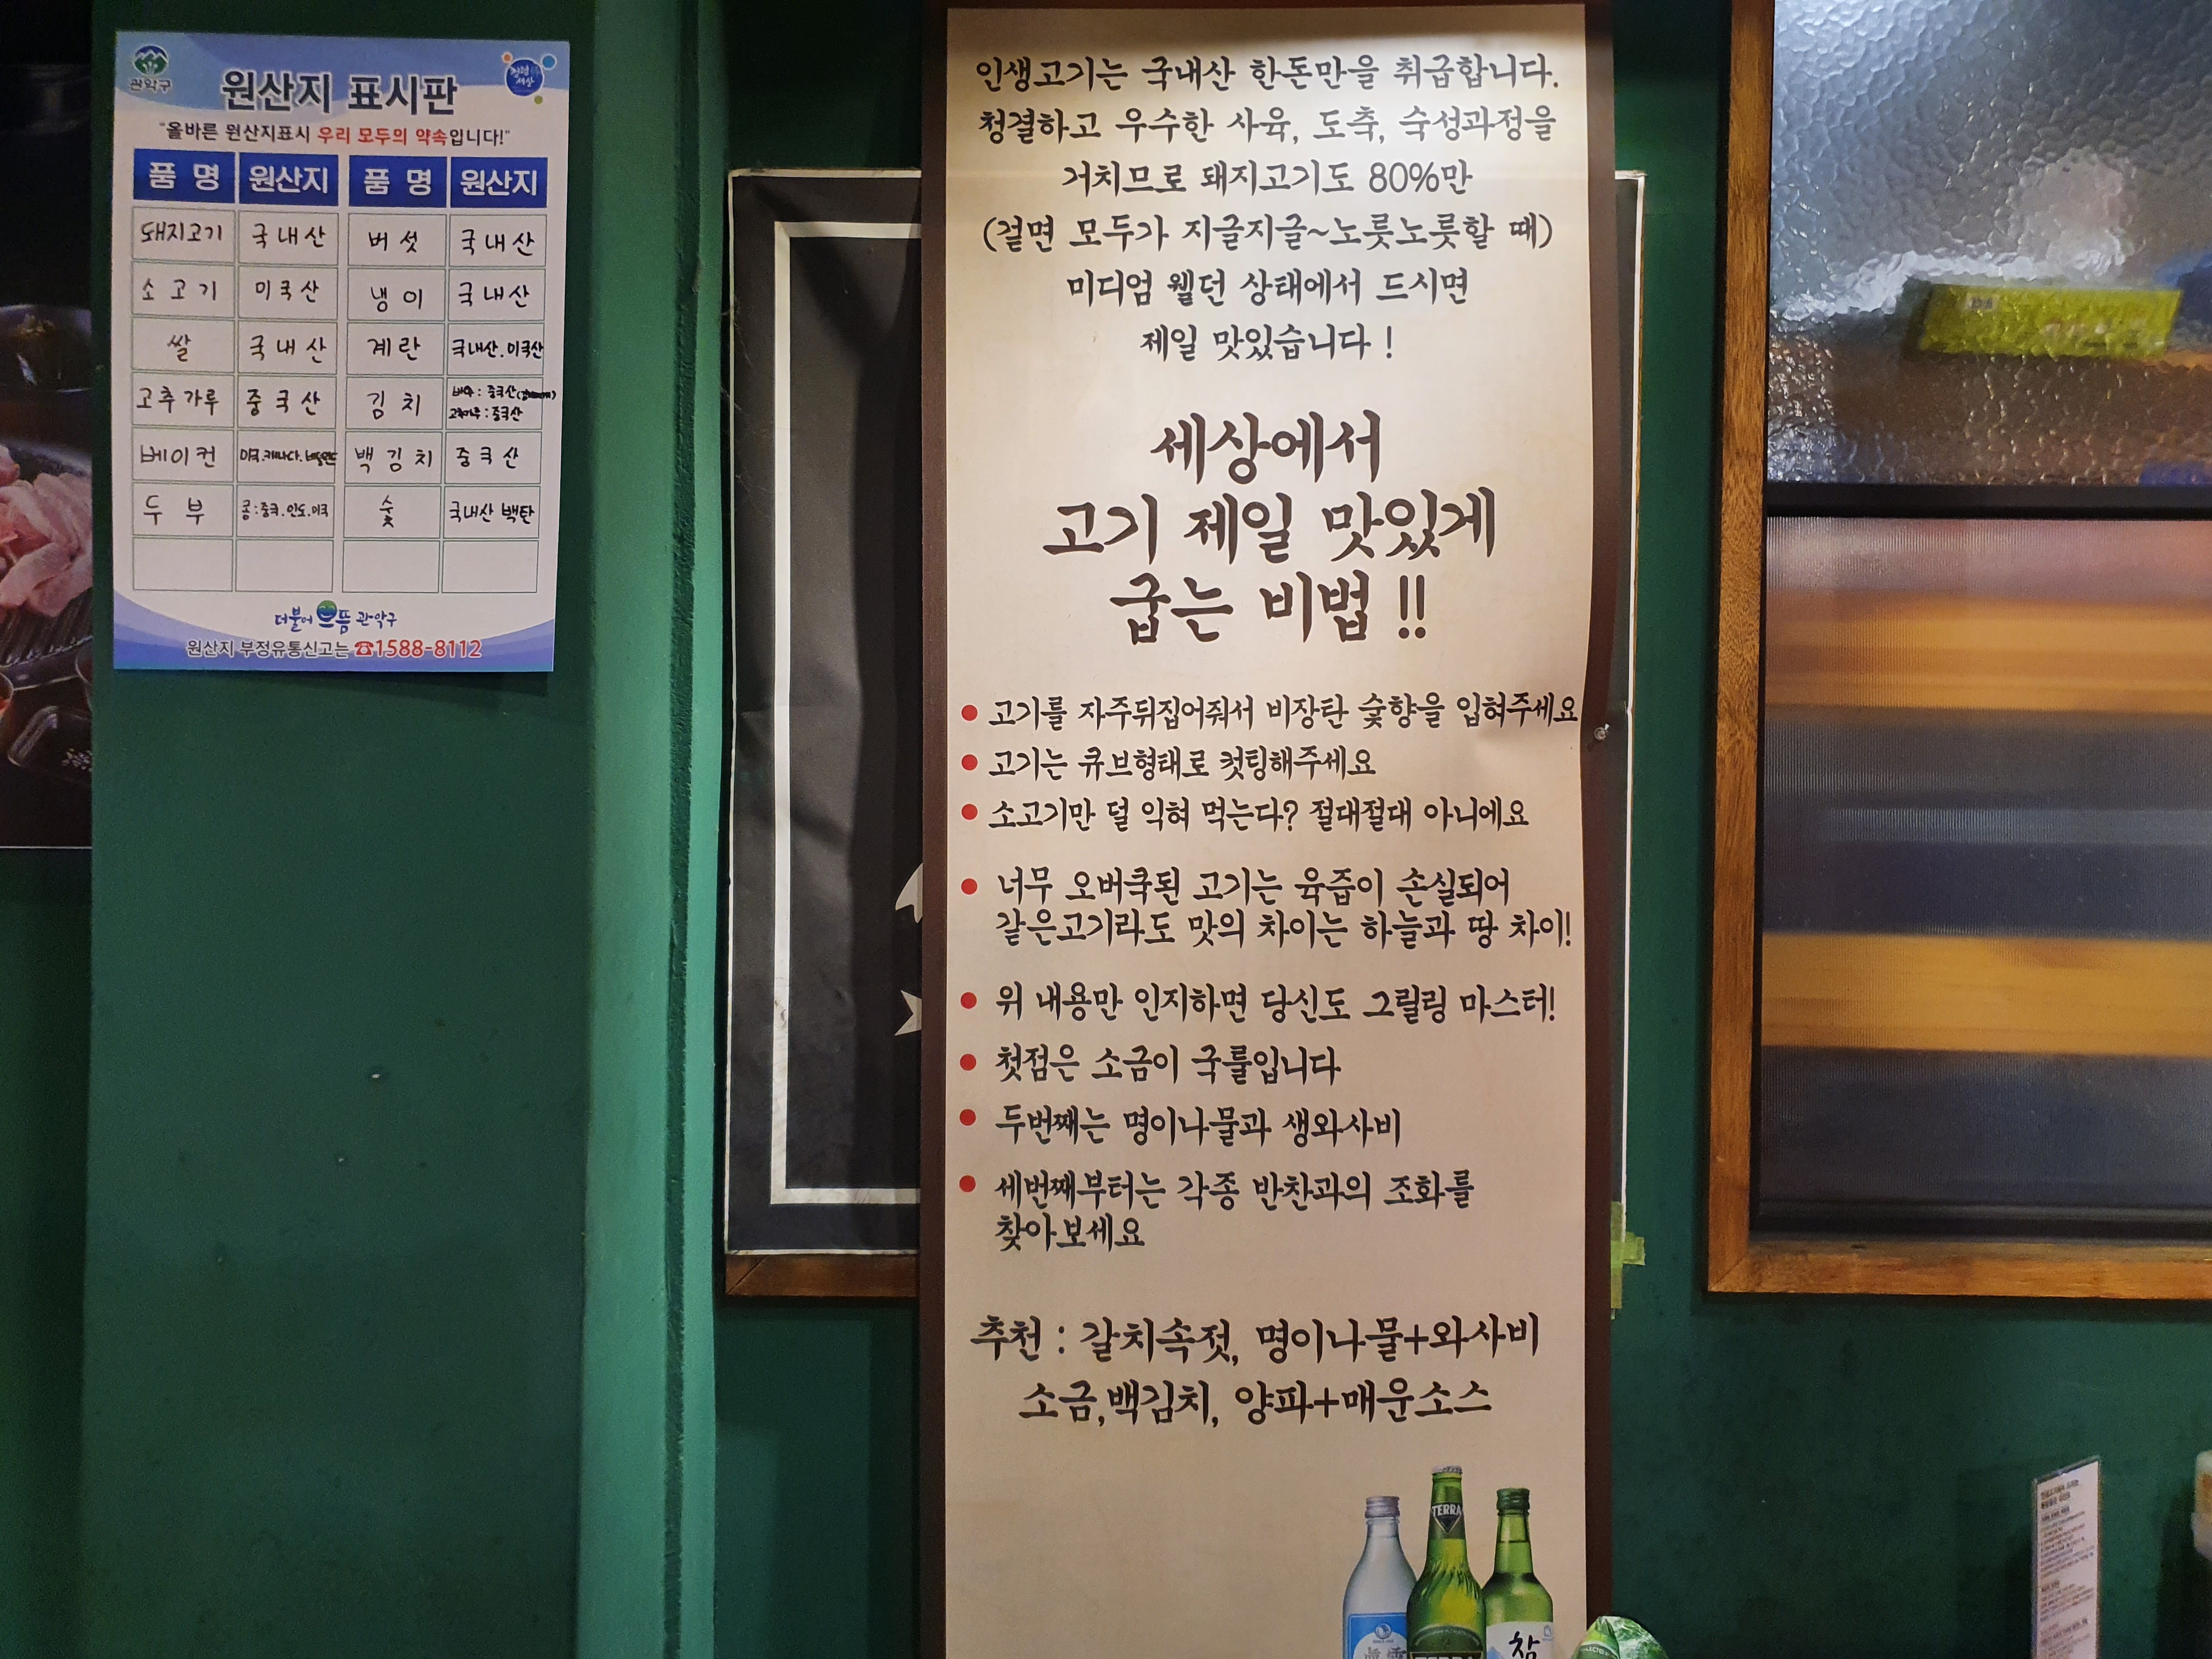 관악구
원산지 표시판
"올바른 원산지표시 우리 모두의 약속입니다!"
품 명 원산지 품 명 원산지
돼지고기 국내산 버섯 국내산
소고기 미국산 냉이 국내산
쌀 국내산 계란 국내산.미국산
고추가루 중국산 김치 배추 : 중국산
고추가루 : 중국산
베이컨 미국.캐나다. 백김치 중국산
두부 콩:중국.인도.미국 숯 국내산 백탄
더불어 으뜸 관악구
원산지 부정유통신고는 ☎1588-8112
인생고기는 국내산 한돈만을 취급합니다.
청결하고 우수한 사육, 도축, 숙성과정을
거치므로 돼지고기도 80%만
(겉면 모두가 지글지글~노릇노릇할 때)
미디엄 웰던 상태에서 드시면
제일 맛있습니다 !
세상에서
고기 제일 맛있게
굽는 비법 !!
• 고기를 자주뒤집어줘서 비장탄 숯향을 입혀주세요
• 고기는 큐브형태로 컷팅해주세요
• 소고기만 덜 익혀 먹는다? 절대절대 아니에요
• 너무 오버쿡된 고기는 육즙이 손실되어
같은고기라도 맛의 차이는 하늘과 땅 차이!
• 위 내용만 인지하면 당신도 그릴링 마스터!
• 첫점은 소금이 국룰입니다
• 두번째는 명이나물과 생와사비
• 세번째부터는 각종 반찬과의 조화를
찾아보세요
추천 : 갈치속젓, 명이나물+와사비
소금,백김치, 양파+매운소스
TERRA
참
TERRA